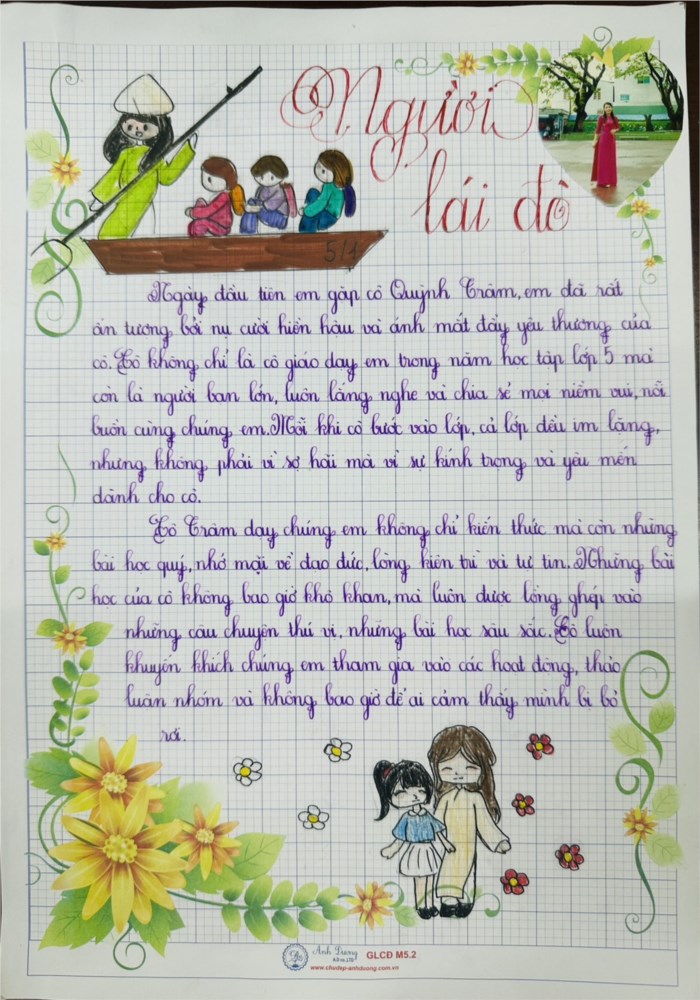 Người
lái đò
5/1
Ngày đầu tiên em gặp cô Quỳnh Trâm, em đã rất
ấn tượng bởi nụ cười hiền hậu và ánh mắt đầy yêu thương của
cô. Cô không chỉ là cô giáo dạy em trong năm học tập lớp 5 mà
còn là người bạn lớn, luôn lắng nghe và chia sẻ mọi niềm vui, nỗi
buồn cùng chúng em. Mỗi khi cô bước vào lớp, cả lớp đều im lặng,
nhưng không phải vì sợ hãi mà vì sự kính trọng và yêu mến
dành cho cô.
Cô Trâm dạy chúng em không chỉ kiến thức mà còn những
bài học quý, nhớ mãi về đạo đức, lòng kiên trì và tự tin. Những bài
học của cô không bao giờ khô khan, mà luôn được lồng ghép vào
những câu chuyện thú vị, những bài học sâu sắc. Cô luôn
khuyến khích chúng em tham gia vào các hoạt động, thảo
luận nhóm và không bao giờ để ai cảm thấy mình bị bỏ
rơi.
Anh Dương GLCĐ M5.2
www.chodep-anhduong.com.vn